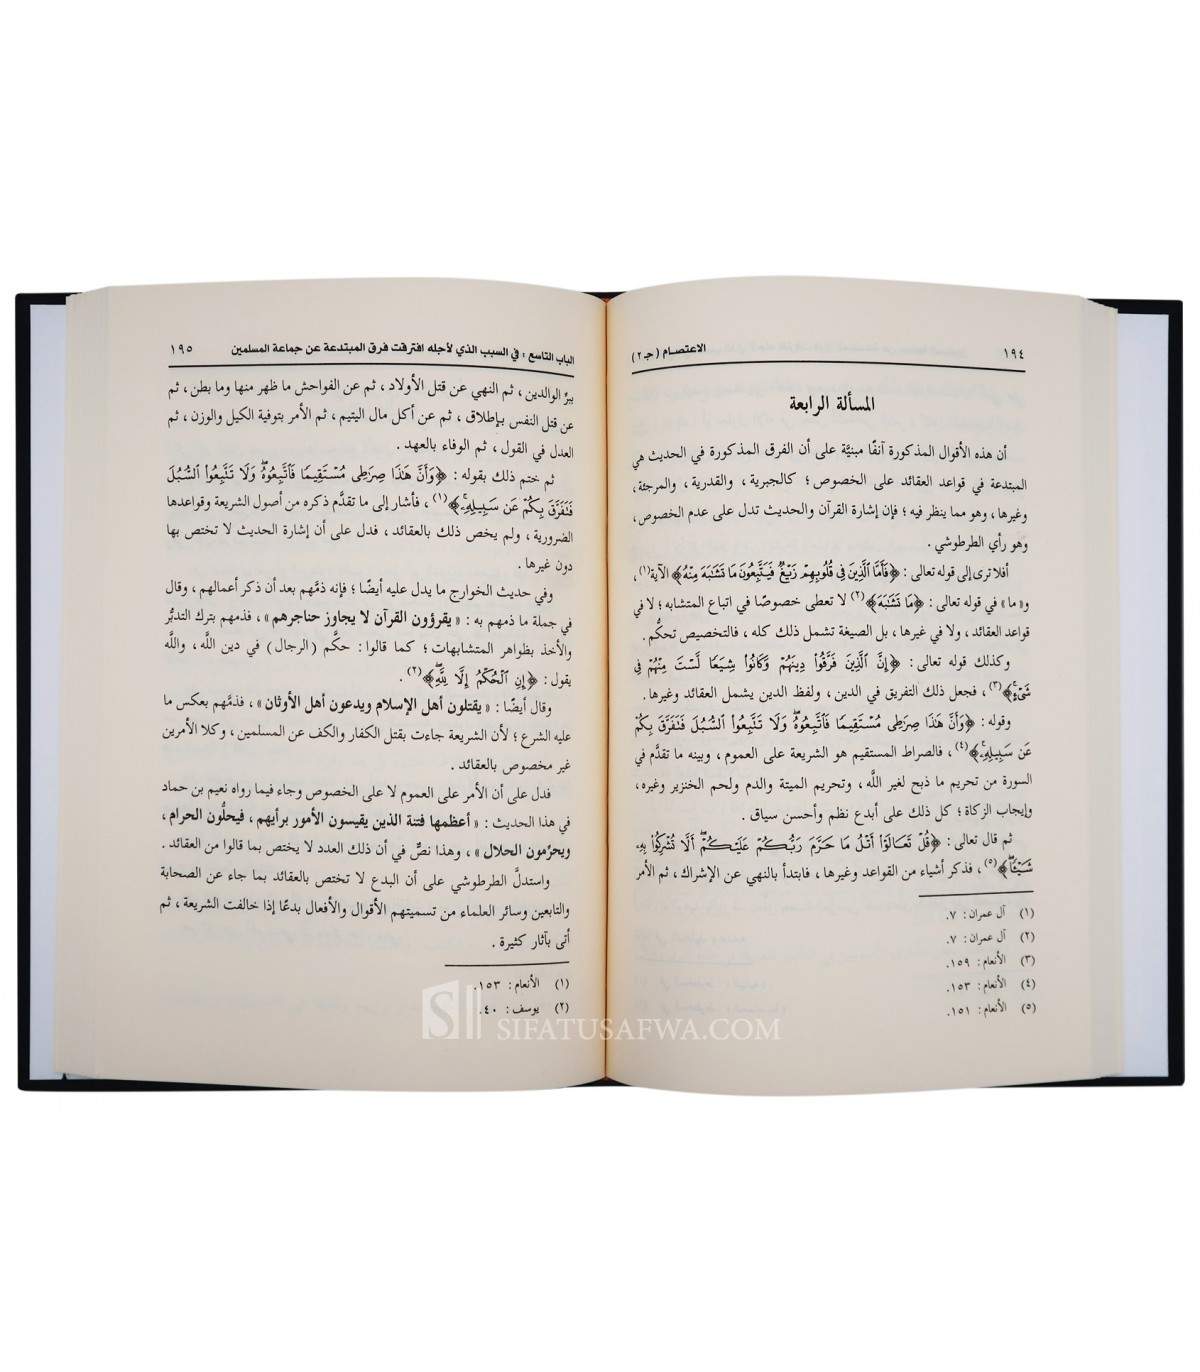 ١٩٤ الاعتصام ( جـ ٢ )
المسألة الرابعة
أن هذه الأقوال المذكورة آنفًا مبنيَّة على أن الفرق المذكورة في الحديث هي
المبتدعة في قواعد العقائد على الخصوص ؛ كالجبرية ، والقدرية ، والمرجئة،
وغيرها ، وهو مما ينظر فيه ؛ فإن إشارة القرآن والحديث تدل على عدم الخصوص،
وهو رأي الطرطوشي .
أفلا ترى إلى قوله تعالى : ﴿فَأَمَّا ٱلَّذِينَ فِى قُلُوبِهِمْ زَيْغٌ فَيَتَّبِعُونَ مَا تَشَٰبَهَ مِنْهُ﴾ الآية(١)،
و« ما » في قوله تعالى : ﴿مَا تَشَٰبَهَ﴾(٢) لا تعطى خصوصًا في اتباع المتشابه ؛ لا في
قواعد العقائد ، ولا في غيرها ، بل الصيغة تشمل ذلك كله ، فالتخصيص تحكُّم .
وكذلك قوله تعالى : ﴿إِنَّ ٱلَّذِينَ فَرَّقُوا۟ دِينَهُمْ وَكَانُوا۟ شِيَعًا لَّسْتَ مِنْهُمْ فِى
شَىْءٍ﴾(٣) ، فجعل ذلك التفريق في الدين ، ولفظ الدين يشمل العقائد وغيرها .
وقوله : ﴿وَأَنَّ هَٰذَا صِرَٰطِى مُسْتَقِيمًا فَٱتَّبِعُوهُ وَلَا تَتَّبِعُوا۟ ٱلسُّبُلَ فَتَفَرَّقَ بِكُمْ
عَن سَبِيلِهِۦ﴾(٤) ، فالصراط المستقيم هو الشريعة على العموم ، وبينه ما تقدَّم في
السورة من تحريم ما ذبح لغير اللَّه ، وتحريم الميتة والدم ولحم الخنزير وغيره،
وإيجاب الزكاة ؛ كل ذلك على أبدع نظم وأحسن سياق .
ثم قال تعالى : ﴿قُلْ تَعَالَوْا۟ أَتْلُ مَا حَرَّمَ رَبُّكُمْ عَلَيْكُمْ أَلَّا تُشْرِكُوا۟ بِهِۦ
شَيْـًٔا﴾(٥) ، فذكر أشياء من القواعد وغيرها ، فابتدأ بالنهي عن الإشراك ، ثم الأمر
(١) آل عمران : ٧.
(٢) آل عمران : ٧.
(٣) الأنعام : ١٥٩.
(٤) الأنعام : ١٥٣.
(٥) الأنعام : ١٥١.
الباب التاسع : في السبب الذي لأجله افترقت فرق المبتدعة عن جماعة المسلمين ١٩٥
ببرِّ الوالدين ، ثم النهي عن قتل الأولاد ، ثم عن الفواحش ما ظهر منها وما بطن ، ثم
عن قتل النفس بإطلاق ، ثم عن أكل مال اليتيم ، ثم الأمر بتوفية الكيل والوزن ، ثم
العدل في القول ، ثم الوفاء بالعهد .
ثم ختم ذلك بقوله : ﴿وَأَنَّ هَٰذَا صِرَٰطِى مُسْتَقِيمًا فَٱتَّبِعُوهُ وَلَا تَتَّبِعُوا۟ ٱلسُّبُلَ
فَتَفَرَّقَ بِكُمْ عَن سَبِيلِهِۦ﴾(١) ، فأشار إلى ما تقدَّم ذكره من أصول الشريعة وقواعدها
الضرورية ، ولم يخص ذلك بالعقائد ، فدل على أن إشارة الحديث لا تختص بها
دون غيرها .
وفي حديث الخوارج ما يدل عليه أيضًا ؛ فإنه ذمَّهم بعد أن ذكر أعمالهم ، وقال
في جملة ما ذمهم به : « يقرؤون القرآن لا يجاوز حناجرهم » ، فذمهم بترك التدبُّر
والأخذ بظواهر المتشابهات ؛ كما قالوا : حكَّم (الرجال) في دين اللَّه ، واللَّه
يقول : ﴿إِنِ ٱلْحُكْمُ إِلَّا لِلَّهِ﴾(٢) .
وقال أيضًا : « يقتلون أهل الإسلام ويدعون أهل الأوثان » ، فذمَّهم بعكس ما
عليه الشرع ؛ لأن الشريعة جاءت بقتل الكفار والكف عن المسلمين ، وكلا الأمرين
غير مخصوص بالعقائد .
فدل على أن الأمر على العموم لا على الخصوص وجاء فيما رواه نعيم بن حماد
في هذا الحديث : « أعظمها فتنة الذين يقيسون الأمور برأيهم ، فيحلُّون الحرام ،
ويحرِّمون الحلال » ، وهذا نصٌّ في أن ذلك العدد لا يختص بما قالوا من العقائد .
واستدلَّ الطرطوشي على أن البدع لا تختص بالعقائد بما جاء عن الصحابة
والتابعين وسائر العلماء من تسميتهم الأقوال والأفعال بدعًا إذا خالفت الشريعة ، ثم
أتى بآثار كثيرة .
(١) الأنعام : ١٥٣.
(٢) يوسف : ٤٠.
SIFATUSAFWA.COM